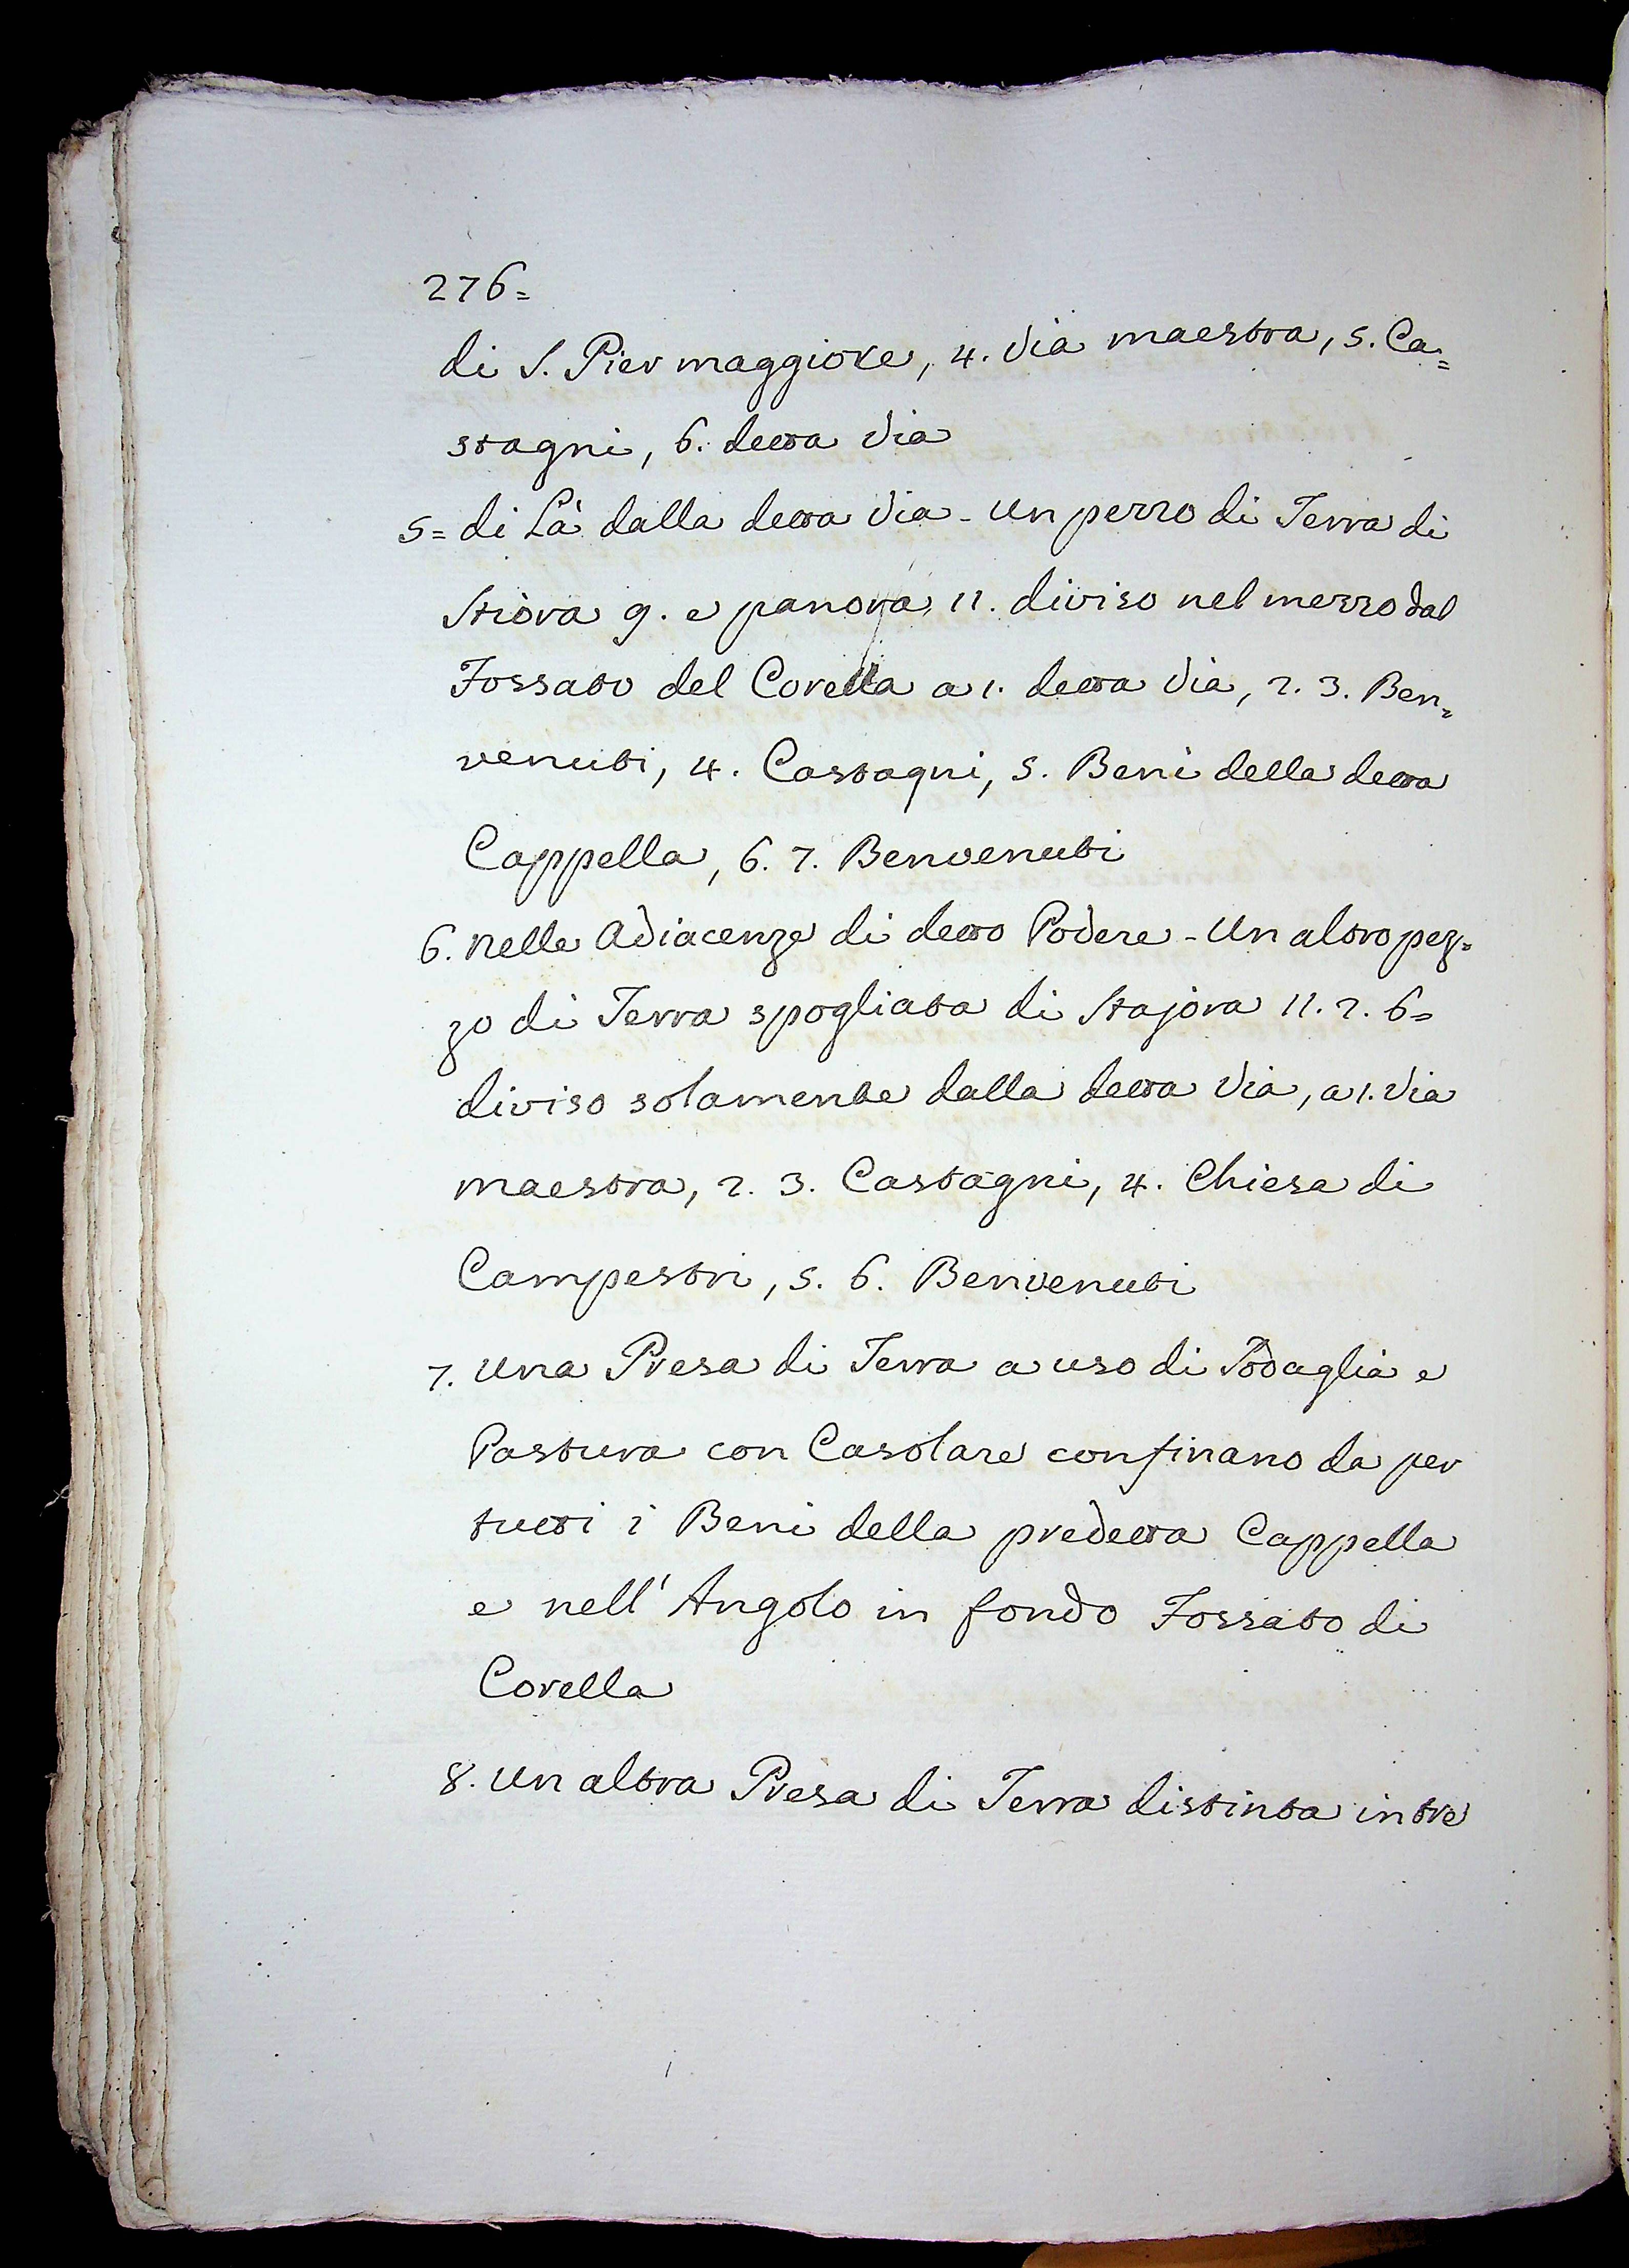 276=
di S. Pier maggiore, 4. Via maestra, 5. Ca=
stagni, 6. detta Via
5= di Là dalla detta Via - Un pezzo di Terra di
Stiora 9. e panora 11. diviso nel mezzo dal
Fossato del Corella a 1. detta Via, 2. 3. Ben=
venuti, 4. Castagni, 5. Beni della detta
Cappella, 6. 7. Benvenuti
6. Nelle Adiacenze di detto Podere - Un altro pez=
zo di Terra spogliata di Stajora 11. 2. 6=
diviso solamente dalla detta Via, a 1. Via
maestra, 2. 3. Castagni, 4. Chiesa di
Campestri, 5. 6. Benvenuti
7. Una Presa di Terra a uso di Frodaglia e
Pastura con Casolare confinano da per
tutti i Beni della predetta Cappella
e nell' Angolo in fondo Fossato di
Corella
8. Un altra Presa di Terra distinta in tre